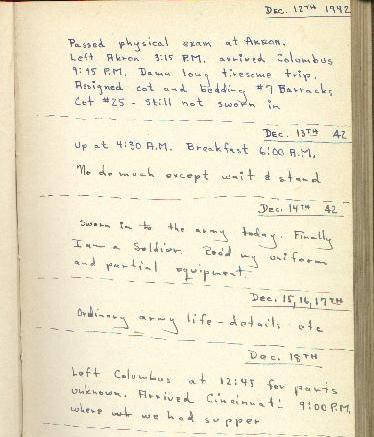 Dec. 12TH 1942
Passed physical exam at Akron.
Left Akron 3:15 P.M. arrived Columbus
9:45 P.M. Damn long tiresome trip.
Assigned cot and bedding #7 Barracks
Cot #25 - Still not sworn in
Dec. 13TH 42
Up at 4:30 A.M. Breakfast 6:00 A.M.
No do much except wait & stand
Dec. 14TH 42
Sworn in to the army today. Finally
I am a Soldier. Rec'd my uniform
and partial equipment.
Dec. 15, 16, 17TH
Ordinary army life - details etc
Dec. 18TH
Left Columbus at 12:45 for parts
unknown. Arrived Cincinnati 9:00 P.M.
where we had supper